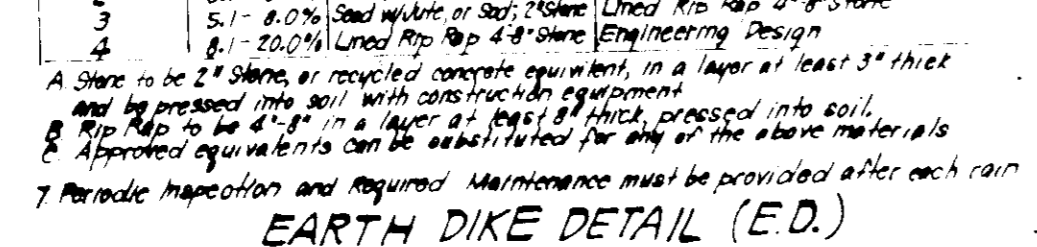 3 5.1-8.0% Seed w/Jute, or Sod; 2" Stone Lined Rip Rap 4"-8" Stone
4 8.1-20.0% Lined Rip Rap 4"-8" Stone Engineering Design
A. Stone to be 2" Stone, or recycled concrete equivilent, in a layer at least 3" thick
and be pressed into soil with construction equipment
B. Rip Rap to be 4"-8" in a layer at least 8" thick, pressed into soil.
C. Approved equivalents can be substituted for any of the above materials
7. Periodic Inspection and Required Maintenance must be provided after each rain
EARTH DIKE DETAIL (E.D.)